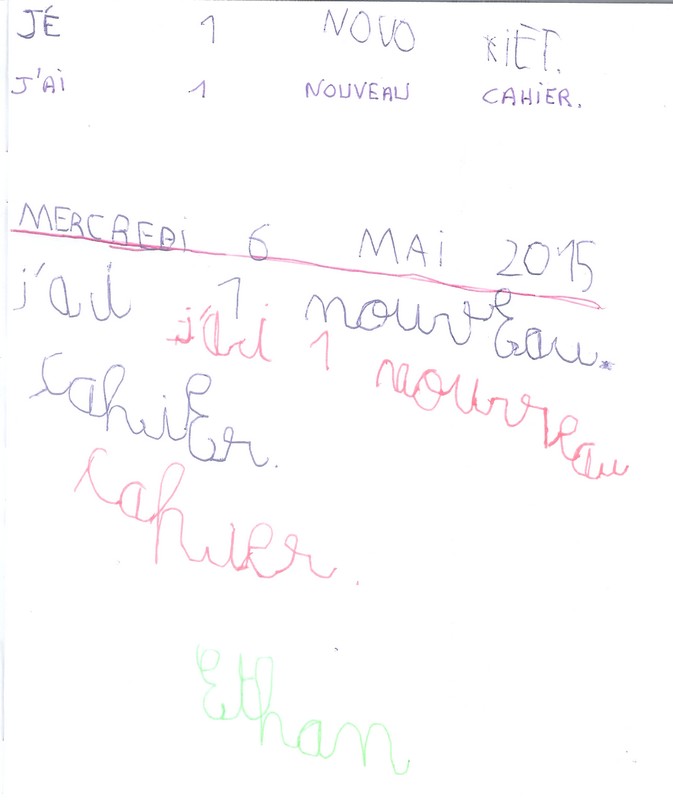 JÉ 1 NOVO KIÈT.
J'AI 1 NOUVEAU CAHIER.
MERCREDI 6 MAI 2015
j'ai 1 nouvEau.
j'ai 1 nouveau
cahiEr.
cahier.
Ethan